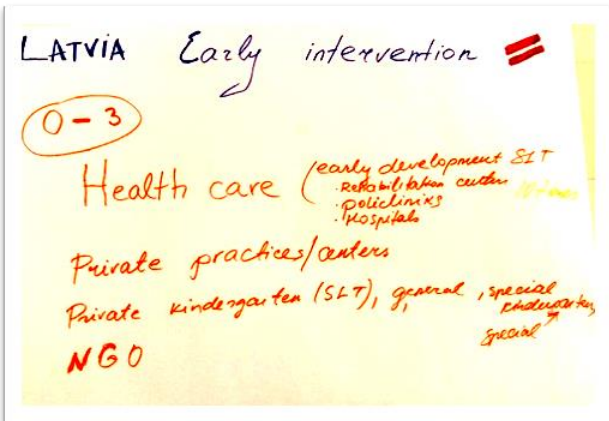 LATVIA Early intervention =
0 - 3
Health care (early development SLT
· Rehabilitation centers
· policliniks
· Hospitals
Private practices/centers
Private kindergarten (SLT), general, special kindergarten,
special
NGO